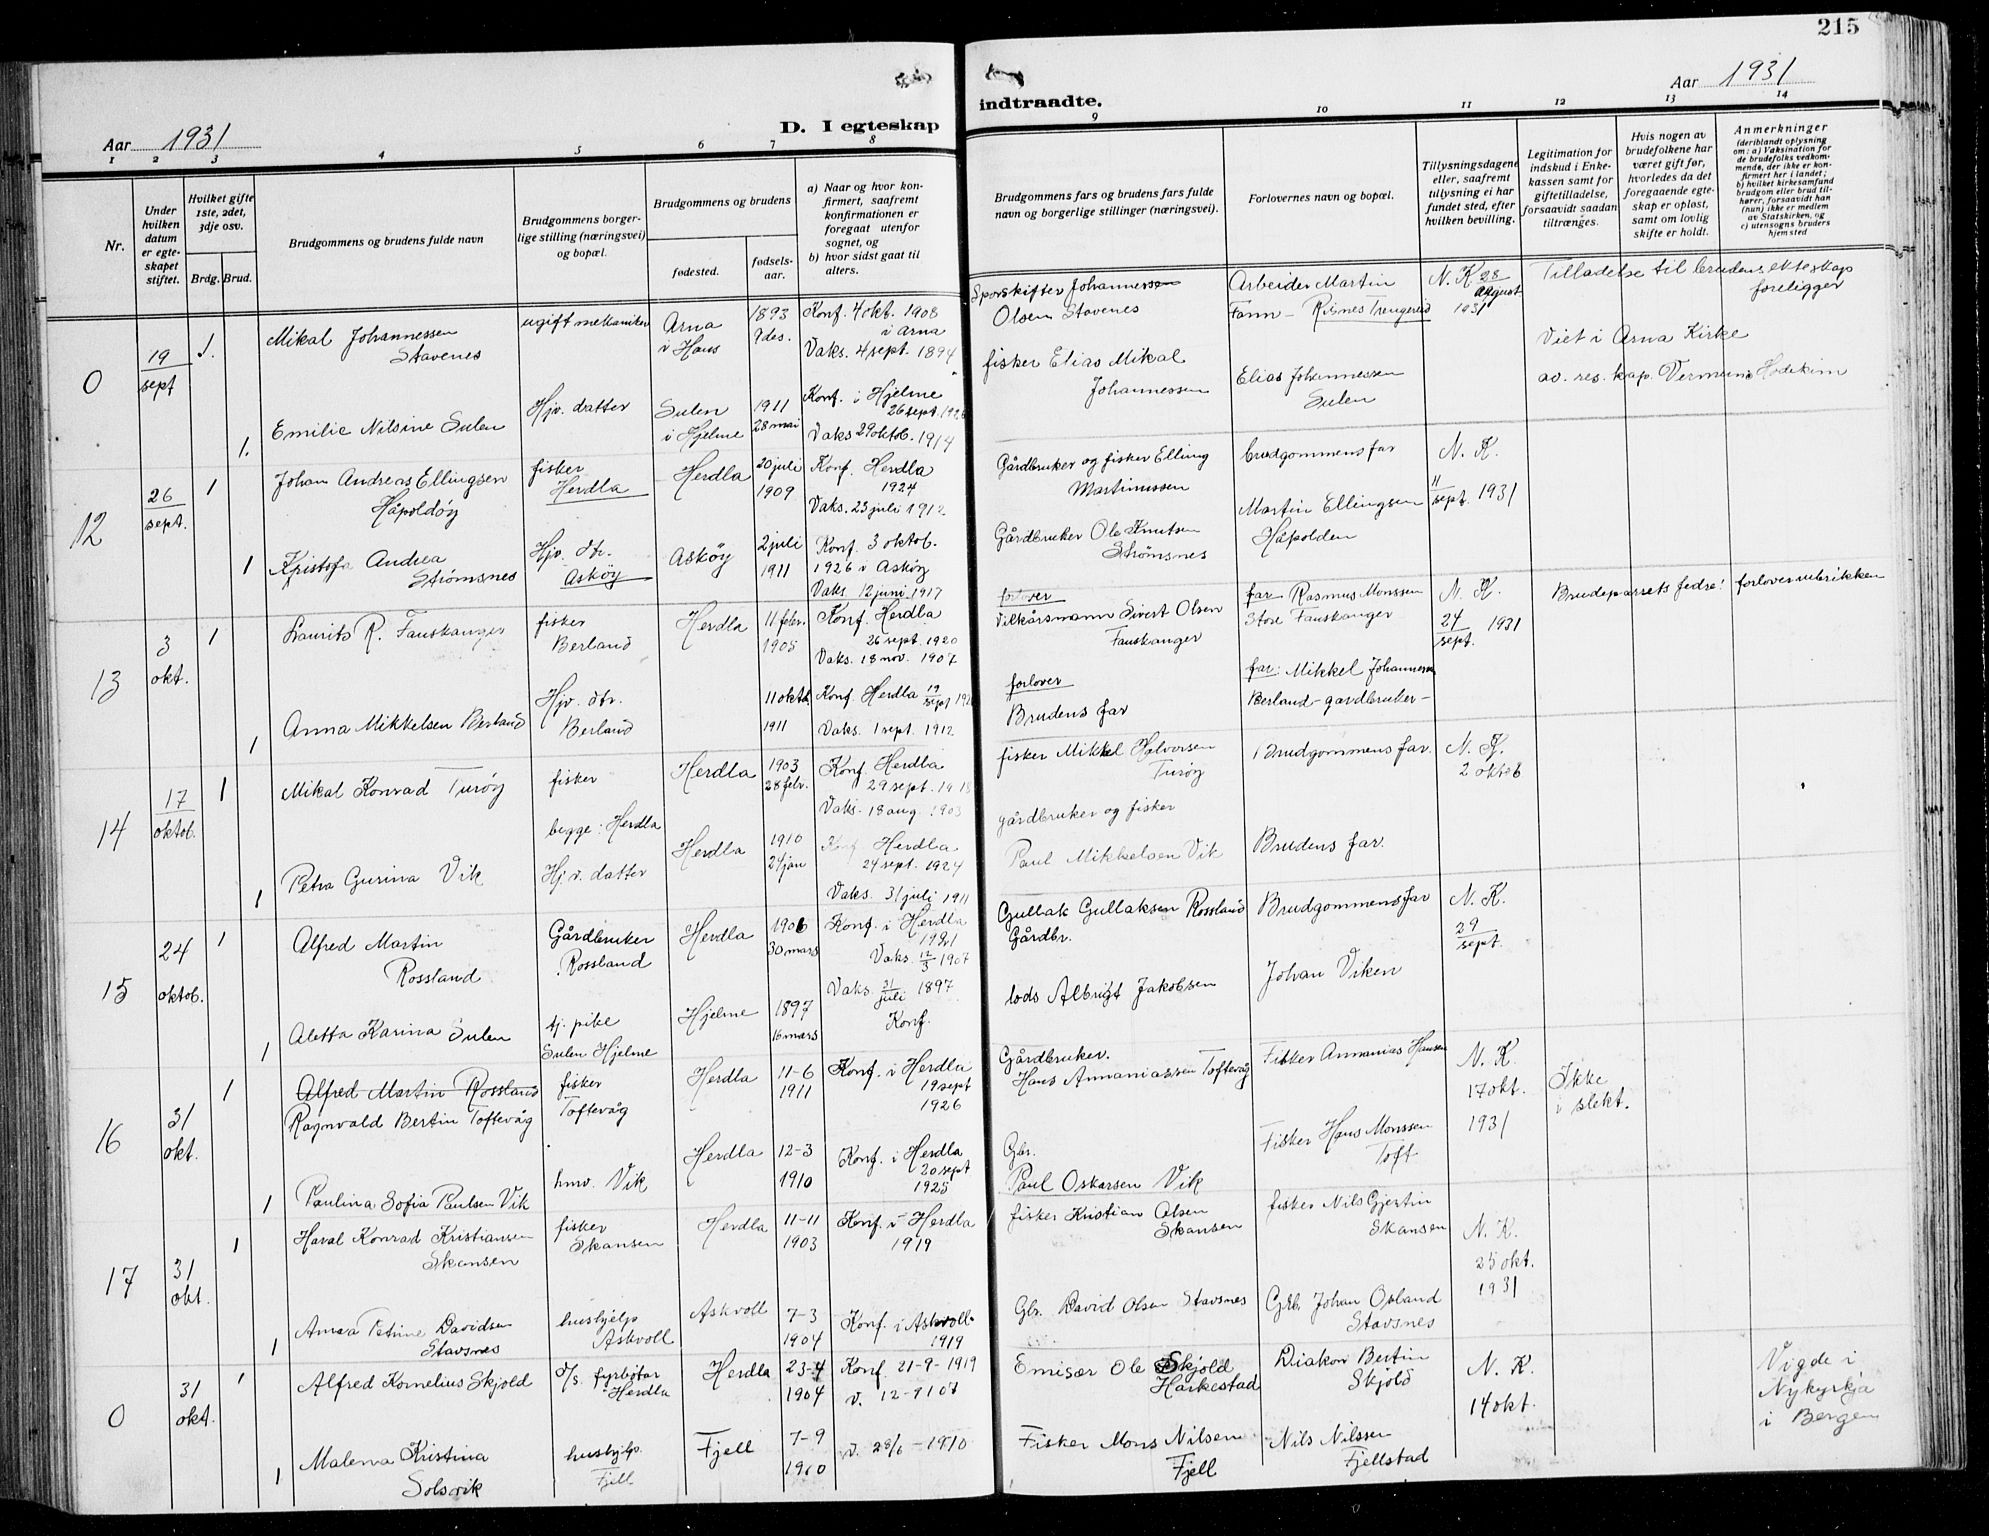 215
Aar 1931
D. I egteskap
indtraadte.
Aar 1931
1 2 3 4 5 6 7 8 9 10 11 12 13 14
Nr.
Under hvilken datum er egteskapet stiftet.
Hvilket gifte 1ste, 2det, 3dje osv.
Brdg. Brud.
Brudgommens og brudens fulde navn
Brudgommens borgerlige stilling (næringsvei) og bopæl.
Brudgommens og brudens
fødested.
fødselsaar.
a) Naar og hvor konfirmert, saafremt konfirmationen er foregaat utenfor sognet, og
b) hvor sidst gaat til alters.
Brudgommens fars og brudens fars fulde navn og borgerlige stillinger (næringsvei).
Forlovernes navn og bopæl.
Tillysningsdagene eller, saafremt tillysning ei har fundet sted, efter hvilken bevilling.
Legitimation for indskud i Enkekassen samt for giftetilladelse, forsaavidt saadan tiltrænges.
Hvis nogen av brudefolkene har været gift før, hvorledes da det foregaaende egteskap er opløst, samt om lovlig skifte er holdt.
Anmerkninger (deriblandt oplysning om: a) Vaksination for de brudefolks vedkommende, der ikke er konfirmert her i landet; b) hvilket kirkesamfund brudgom eller brud tilhører, forsaavidt han (hun) ikke er medlem av Statskirken, og c) utensogns bruders hjemsted
0
19 sept
1.
Mikal Johannessen Stavenes
ugift mekaniker
Arna i Haus
1893 9 des.
Konf. 4 okt. 1908 i Arna
Vaks. 4 sept. 1894
Sporskifter Johannessen Olsen Stavenes
Arbeider Martin Fann - Risnes Trengereid
N. K. 28 august 1931
Tilladelse til brudens ekteskap foreligger
Viet i Arna Kirke
av. res. kap. Vermund Hodekim
1.
Emilie Nilsine Sulen
Hjv. datter
Sulen i Hjelme
1911 28 mai
Konf. i Hjelme 26 sept. 1926
Vaks 29 oktob. 1914
fisker Elias Mikal Johannessen
Elias Johannessen Sulen
12
26 sept.
1
Johan Andreas Ellingsen Håpoldøy
fisker Herdla
Herdla
20 juli 1909
Konf. Herdla 1924
Vaks. 23 juli 1912
Gårdbruker og fisker Elling Martinussen
brudgommens far
N. K. 11 sept. 1931
1
Kristofa Andrea Strømsnes
Hjv. dtr. Askøy
Askøy
2 juli 1911
Konf. 3 oktob. 1926 i Askøy
Vaks. 12 juni 1917
Gårdbruker Ole Knutsen Strømsnes
Martin Ellingsen Håpolden
13
3 okt.
1
Laurits R. Fauskanger
fisker Berland
Herdla
11 febr. 1905
Konf. Herdla 26 sept. 1920
Vaks. 18 nov. 1907
forlover
Vilkårsmann Sivert Olsen Fauskanger
far Rasmus Monssen Store Fauskanger
N. K. 24 sept. 1931
Brudeparrets fedre i forloverrubrikken
1
Anna Mikkelsen Berland
Hjv. dtr. Berland
11 oktb 1911
Konf Herdla 19 sept
Vaks. 1 sept. 1912
forlover
Brudens far
far: Mikkel Johannessen Berland - gardbruker -
14
17 oktob.
1
Mikal Konrad Turøy
fisker
Herdla
1903 28 febr.
Konf. Herdla 29 sept. 1918
Vaks. 18 aug. 1903
fisker Mikkel Halvorsen Turøy
Brudgommens far.
N. K. 2 oktob
begge: Herdla
1
Petra Gurina Vik
Hj. v. datter
Herdla
1910 24 jan
Konf Herdla 24 sept. 1924
Vaks. 31 juli 1911
gårdbruker og fisker
Paul Mikkelsen Vik
Brudens far.
15
24 oktob.
1
Alfred Martin Rossland
Gårdbruker Rossland
Herdla
1906 30 mars
Konf. i Herdla 1921
Vaks. 12/3 1907
Gullak Gullaksen Rossland Gårdbr.
Brudgommens far
N. K. 29 sept.
1
Aletta Karina Sulen
tj. pike Sulen Hjelme
Hjelme
1897 16 mars
Vaks. 31 juli 1897
Konf.
lods Albrigt Jakobsen
Johan Viken
16
31 okt.
1
Alfred Martin Rossland
Ragnvald Bertin Toftevåg
fisker Toftevåg
Herdla
11-6 1911
Konf. i Herdla 19 sept 1926
Gårdbruker. Hans Annaniassen Toftevåg
Fisker Annanias Hansen
N. K. 17 okt. 1931
Ikke i slekt.
1
Paulina Sofia Paulsen Vik
hmv. Vik
Herdla
12-3 1910
Konf. i Herdla 20 sept 1925
Gbr. Paul Oskarsen Vik
Fisker Hans Monssen Toft
17
31 okt.
1
Haval Konrad Kristiansen Skansen
fisker Skansen
Herdla
11-11 1903
Konf. i Herdla 1919
fisker Kristian Olsen Skansen
fisker Nils Gjertin Skansen
N. K. 25 okt. 1931
1
Anna Petrine Davidsen Stavsnes
hushjelp Askvoll
Askvoll
7-3 1904
Konf. i Askvoll 1919
Gbr. David Olsen Stavsnes
Grb. Johan Osland Stavsnes
0
31 okt.
1
Alfred Kornelius Skjold
d/s. fyrbøtar Herdla
Herdla
23-4 1904
Konf. 21-9-1919
v. 12-9 07
Emisær Ole Skjold Harkestad
Diakon Bertin Skjold
N. K. 14 okt.
Vigde i Nykyrkja i Bergen
1
Malena Kristina Solsvik
hushjelp. Fjell
Fjell
7-9 1910
v. 28/6 - 1910
Fisker Mons Nilsen Fjell
Nils Nilssen Fjellstad